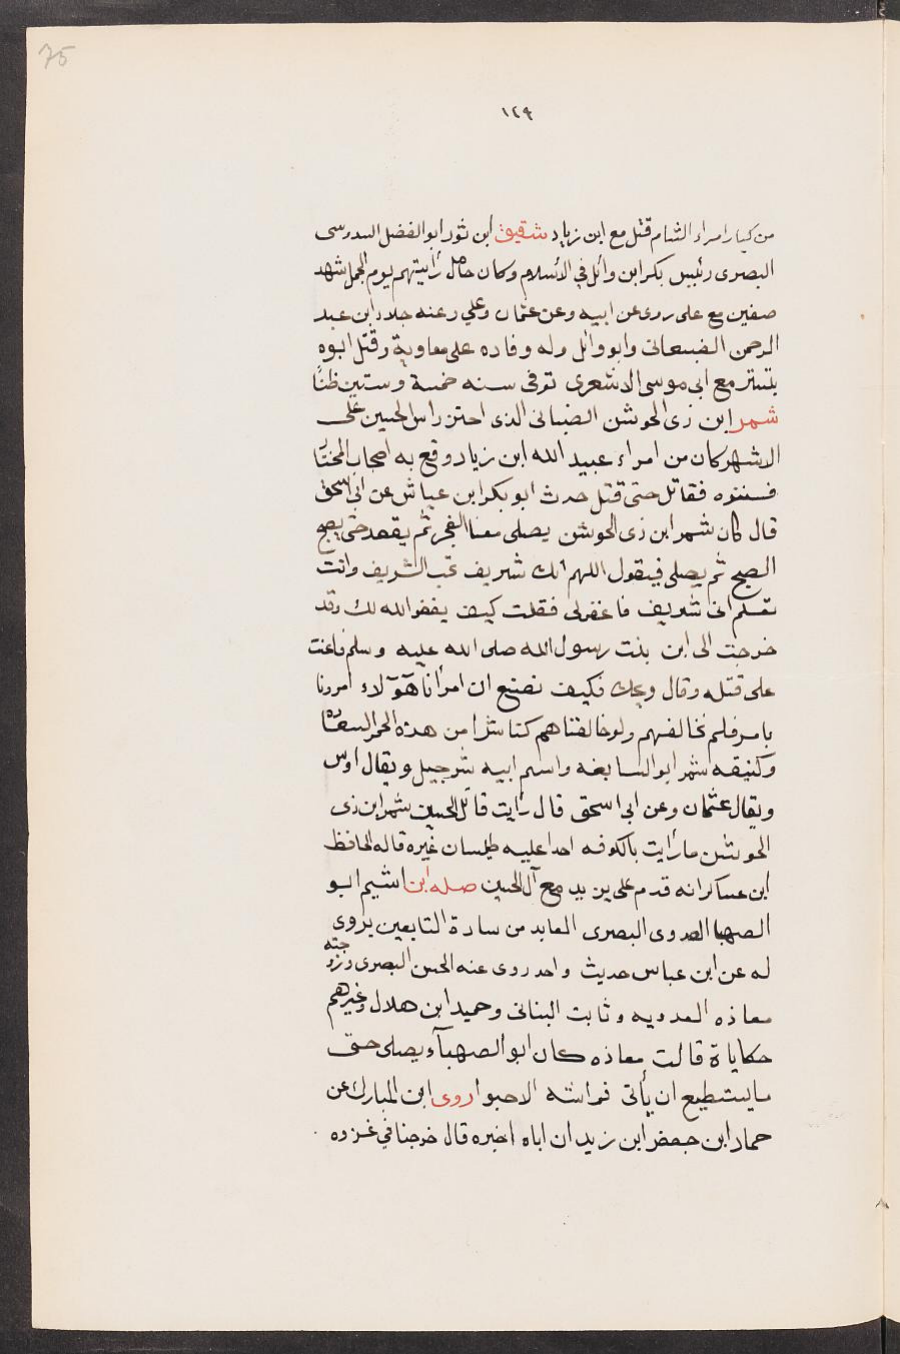 75
١٤٩
من كبار امراء الشام قتل مع ابن زياد شقيق ابن ثور ابو الفضل السدوسى
البصرى رئيس بكر ابن وائل في الاسلام وكان حامل رأيتهم يوم الجمل شهد
صفين مع على روى عن ابيه وعن عثمان وعلي وعنه خلاد ابن عبد
الرحمن الصنعانى وابو وائل وله وفاده على معاوية وقتل ابوه
بتستر مع ابى موسى الاشعرى توفى سنه خمسة وستين ظنًا
شمر ابن ذى الجوشن الضبانى الذى احتز راس الحسين على
الاشهر كان من امراء عبيد الله ابن زياد وقع به اصحاب المختار
فقاتل حتى قتل حدث ابو بكر ابن عياش عن ابى اسحق
قال كان شمر ابن ذى الجوشن يصلى معنا الفجر ثم يقعد حتى يصبح
الصبح ثم يصلى فيقول اللهم انك شريف تحب الشريف وانت
تعلم انى شريف فاغفرلى فقلت كيف يغفر الله لك وقد
خرجت الى ابن بنت رسول الله صلى الله عليه وسلم فاعنت
على قتله وقال ويحك فكيف نصنع ان امرأنا هٓؤلاء امرونا
بامر فلم نخالفهم ولو خالفناهم كنا شرا من هذه الحمر السقاه
وكنيته شمر ابو السابغه واسم ابيه شرحبيل ويقال اوس
ويقال عثمان وعن ابى اسحق قال رأيت قاتل الحسين شمر ابن ذى
الجوشن مارأيت بالكوفه احدا عليه طيلسان غيره قاله الحافظ
ابن عساكر انه قدم على يزيد مع آل الحسين صله ابن اشيم ابو
الصهبا العدوى البصرى العابد من سادة التابعين يروى
له عن ابن عباس حديث واحد روى عنه الحسن البصرى وزوجته
معاذه العدويه وثابت البنانى وحميد ابن هلال وغيرهم
حكاياة قالت معاذه كان ابو الصهبآء يصلى حتى
مايستطيع ان يأتى فراشه الا حبوا روى ابن المبارك عن
حماد ابن جعفر ابن زيد ان اباه اخبره قال خرجنا في غزوه